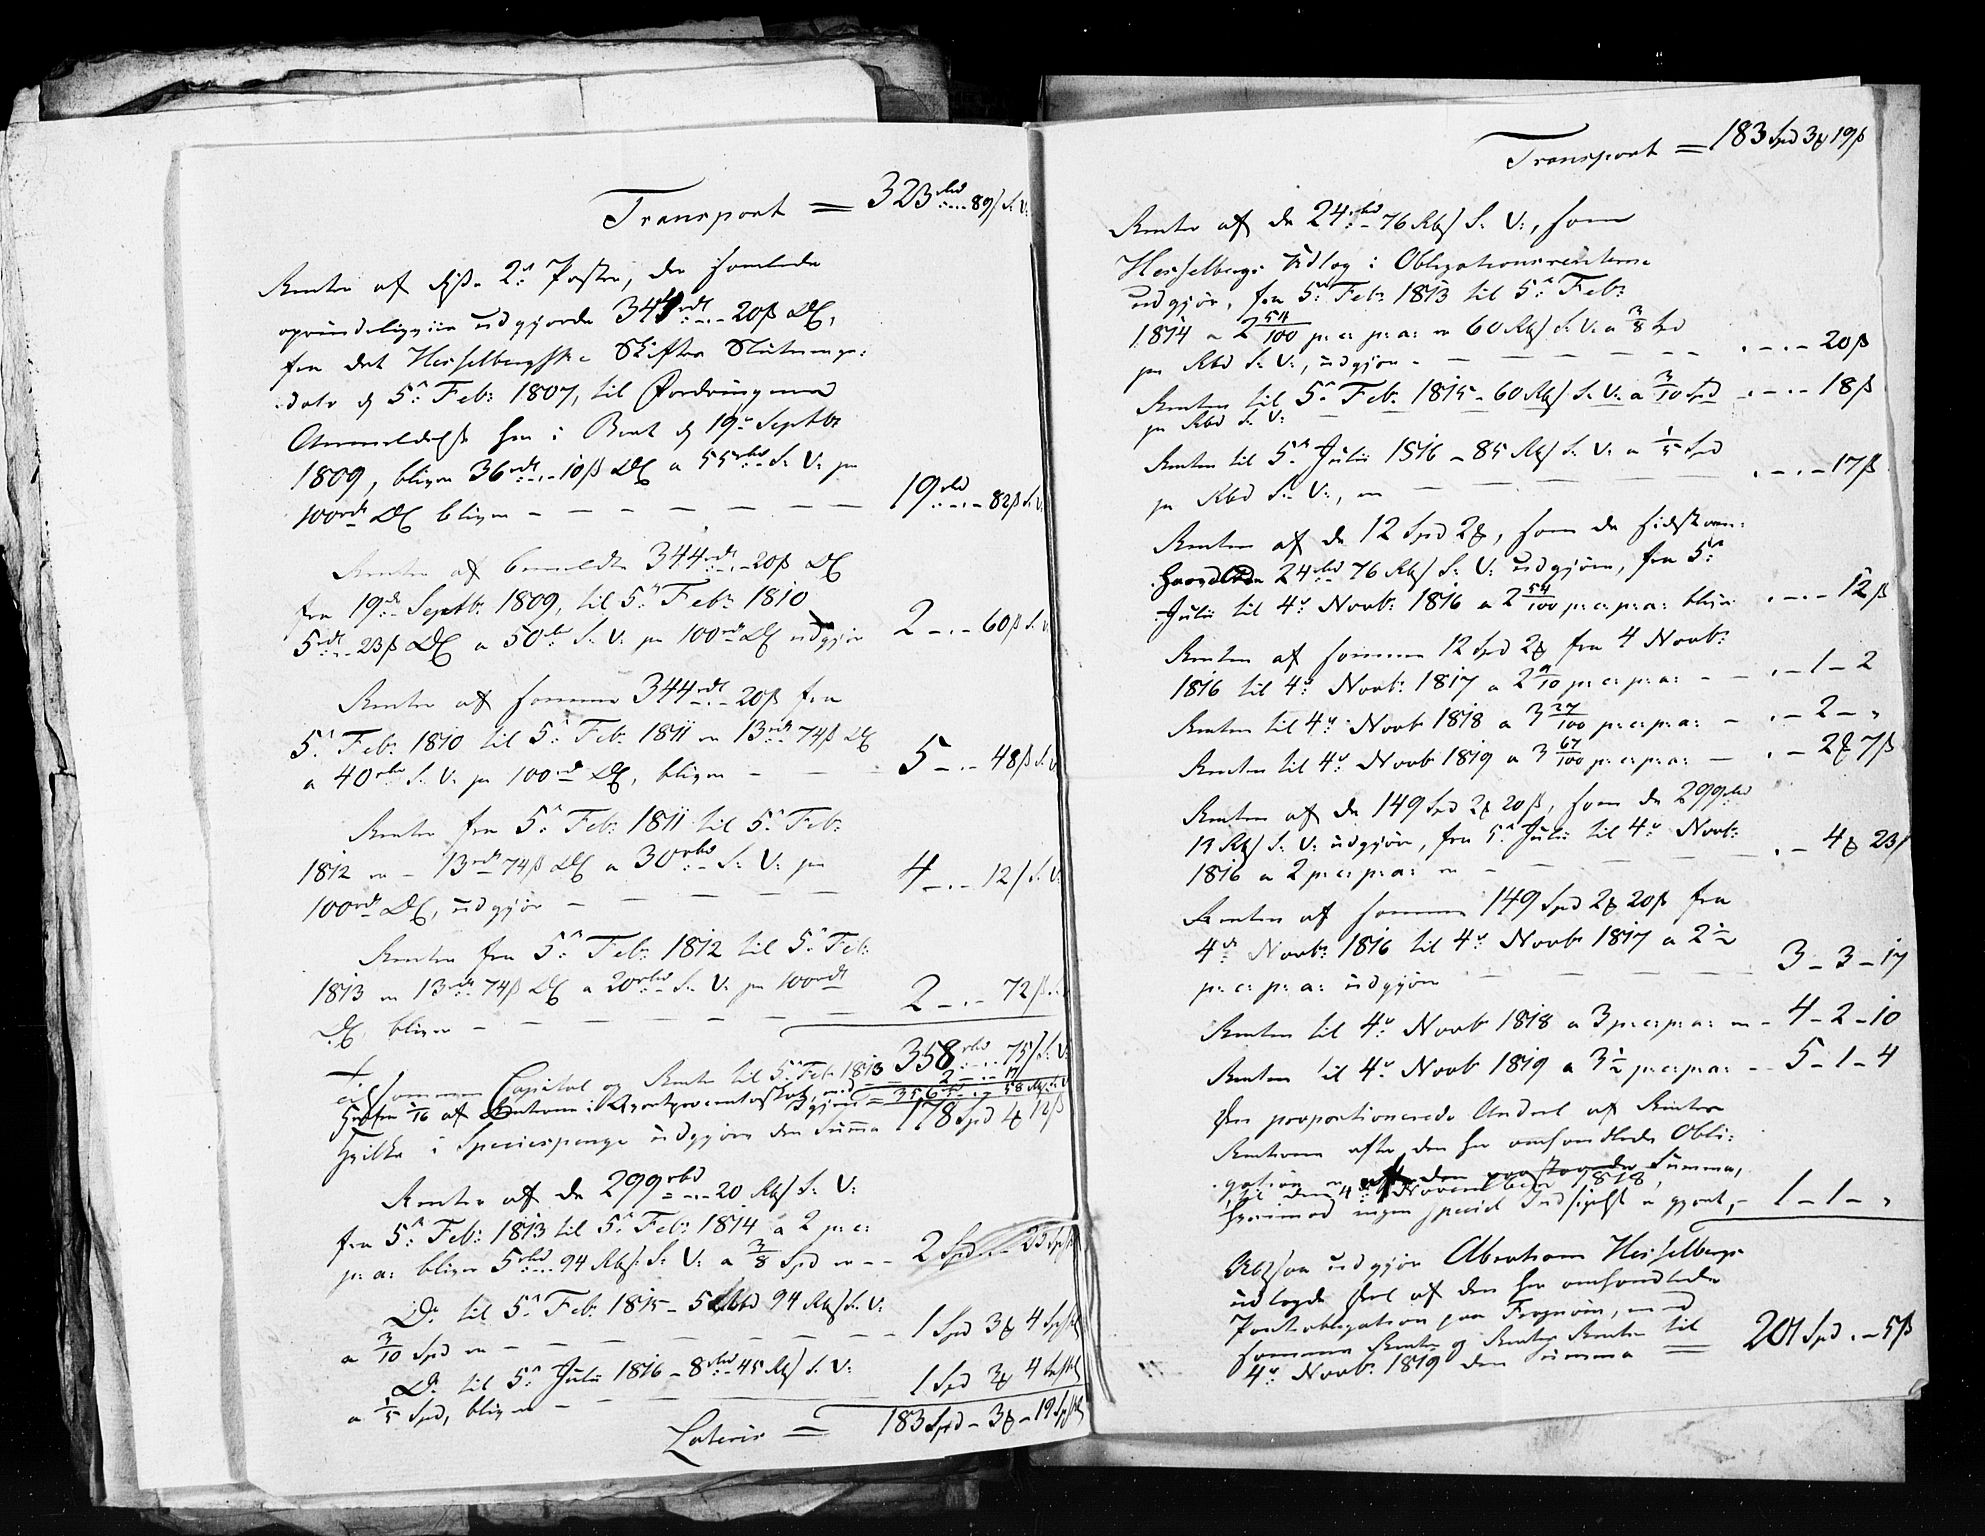 Transport = 323 rbd „ - 89 s S: V:
Renter af disse 2de Poster, der samlede
oprindeligviis udgjorde 344 rdl „ - 20 s DC,
fra det Hesselbergske Skiftes Slutnings-
dato d 5te Feb: 1807, til Fordringernes
Anmeldelse her i Boet d 19de Septbr
1809, bliver 36 rdl „ - 10 s DC a 55 rbd S: V: pr
100 rdl DC bliver - - - - - - - 19 rbd „ - 82 s S: V:
Renter af bemeldte 344 rdl „ - 20 s DC
fra 19de Septbr: 1809, til 5te Feb: 1810
5 rdl „ 23 s DC a 50 rbd S: V: pr 100 rdl DC udgjør 2 - „ - 60 s S: V:
Renter af samme 344 rdl „ - 20 s fra
5te Feb: 1810 til 5te Feb: 1811 er 13 rdl 74 s DC
a 40 rbd S: V: pr 100 rdl DC, bliver - - - 5 - „ - 48 s S: V:
Renter fra 5te Feb: 1811 til 5te Feb:
1812 er - 13 rdl 74 s DC a 30 rbd S: V: pr
100 rdl DC, udgjør - - - - 4 - „ - 12 s S: V:
Renter fra 5te Feb: 1812 til 5te Feb:
1813 er 13 rdl 74 s DC a 20 rbd S: V: pr 100 rdl
DC, bliver - - - - - - - 2 - „ - 72 s S: V:
tilsammen Capital og Renter til 5te Feb 1813 358 rbd „ - 75 s S: V:
2 - „ - 17
1/16 af Renterne i udgjør = 356 rbd „ - 58 Rbs S: V:
Hvilke i Speciespenge udgjøre den Summa 178 Spd 4 12 s
Renter af de 299 rbd „ - 20 Rbs S: V:
fra 5te Feb: 1813 til 5te Feb: 1814 a 2 p: c:
p: a: bliver 5 rbd „ 94 Rbs: S: V: a 3/8 Spd er - - 2 Spd „ - 23
Do til 5te Feb: 1815 - 5 Rbd 94 Rbs S: V:
a 3/10 Spd er - - - - - - - 1 Spd 3 4
Do til 5te Julii 1816 - 8 rbd 45 Rbs S: V:
a 1/5 Spd, bliver - - - - 1 Spd 3 4
Lateris = 183 Spd - 3 - 19
Transport = 183 Spd 3 19 s
Renter af de 24 rbd - 76 Rbs S: V:, som
Hesselbergs Udlæg i Obligationsrenterne
udgjør, fra 5te Feb: 1813 til 5te Feb:
1814 a 2 54/100 p: c: p: a: er 60 Rbs S: V: a 3/8 Spd
pr Rbd S: V:, udgjør - - - - - - - „ - „ - 20 s
Renten til 5te Feb: 1815 - 60 Rbs S: V: a 3/10 Spd
pr Rbd S: V: - - - - - - „ - „ - 18 s
Renten til 5te Julii 1816 - 85 Rbs S: V: a 1/5 Spd
pr Rbd S: V:, er - - - - - - „ - „ - 17 s
Renten af de 12 Spd 2, som de sidstom-
24 rbd 76 Rbs S: V: udgjøre, fra 5te
Julii til 4de Novbr: 1816 a 2 54/100 p: c: p: a: bliver „ - „ - 12 s
Renten af samme 12 Spd 2 fra 4 Novbr:
1816 til 4de Novbr: 1817 a 2 9/10 p: c: p: a: - - „ - 1 - 2
Renten til 4de Novbr 1818 a 3 27/100 p: c: p: a: - „ - 2 - „
Renten til 4de Novbr 1819 a 3 67/100 p: c: p: a: - „ - 2 7 s
Renten af de 149 Spd 2 20 s, som de 299 rbd
13 Rbs S: V: udgjøre, fra 5te Julii til 4de Novbr:
1816 a 2 p: c: p: a: er - - - - - „ - 4 23 s
Renten af samme 149 Spd 2 20 s fra
4de Novbr: 1816 til 4de Novbr 1817 a 2 1/2
p: c: p: a: udgjør - - - - 3 - 3 - 17
Renten til 4de Novbr 1818 a 3 p: c: p: a: er - 4 - 2 - 10
Renten til 4de Novbr 1819 a 3 1/2 p: c: p: a: - - 5 - 1 - 4
Den proportionerede Andeel af Renters
Renterne efter den her omhandlede Obli-
gation er af den Summa,
til den 4de November 1818,
hvorimod ingen speciel Indsigelse er gjort, - 1 - 1 - „
Altsaa udgjør Abraham Hesselbergs
udlagde Deel af den her omhandlede
Pantobligation paa Frognøen, med
samme Renter og Renters Renter til
4de Novbr: 1819 den Summa = 201 Spd „ - 5 s